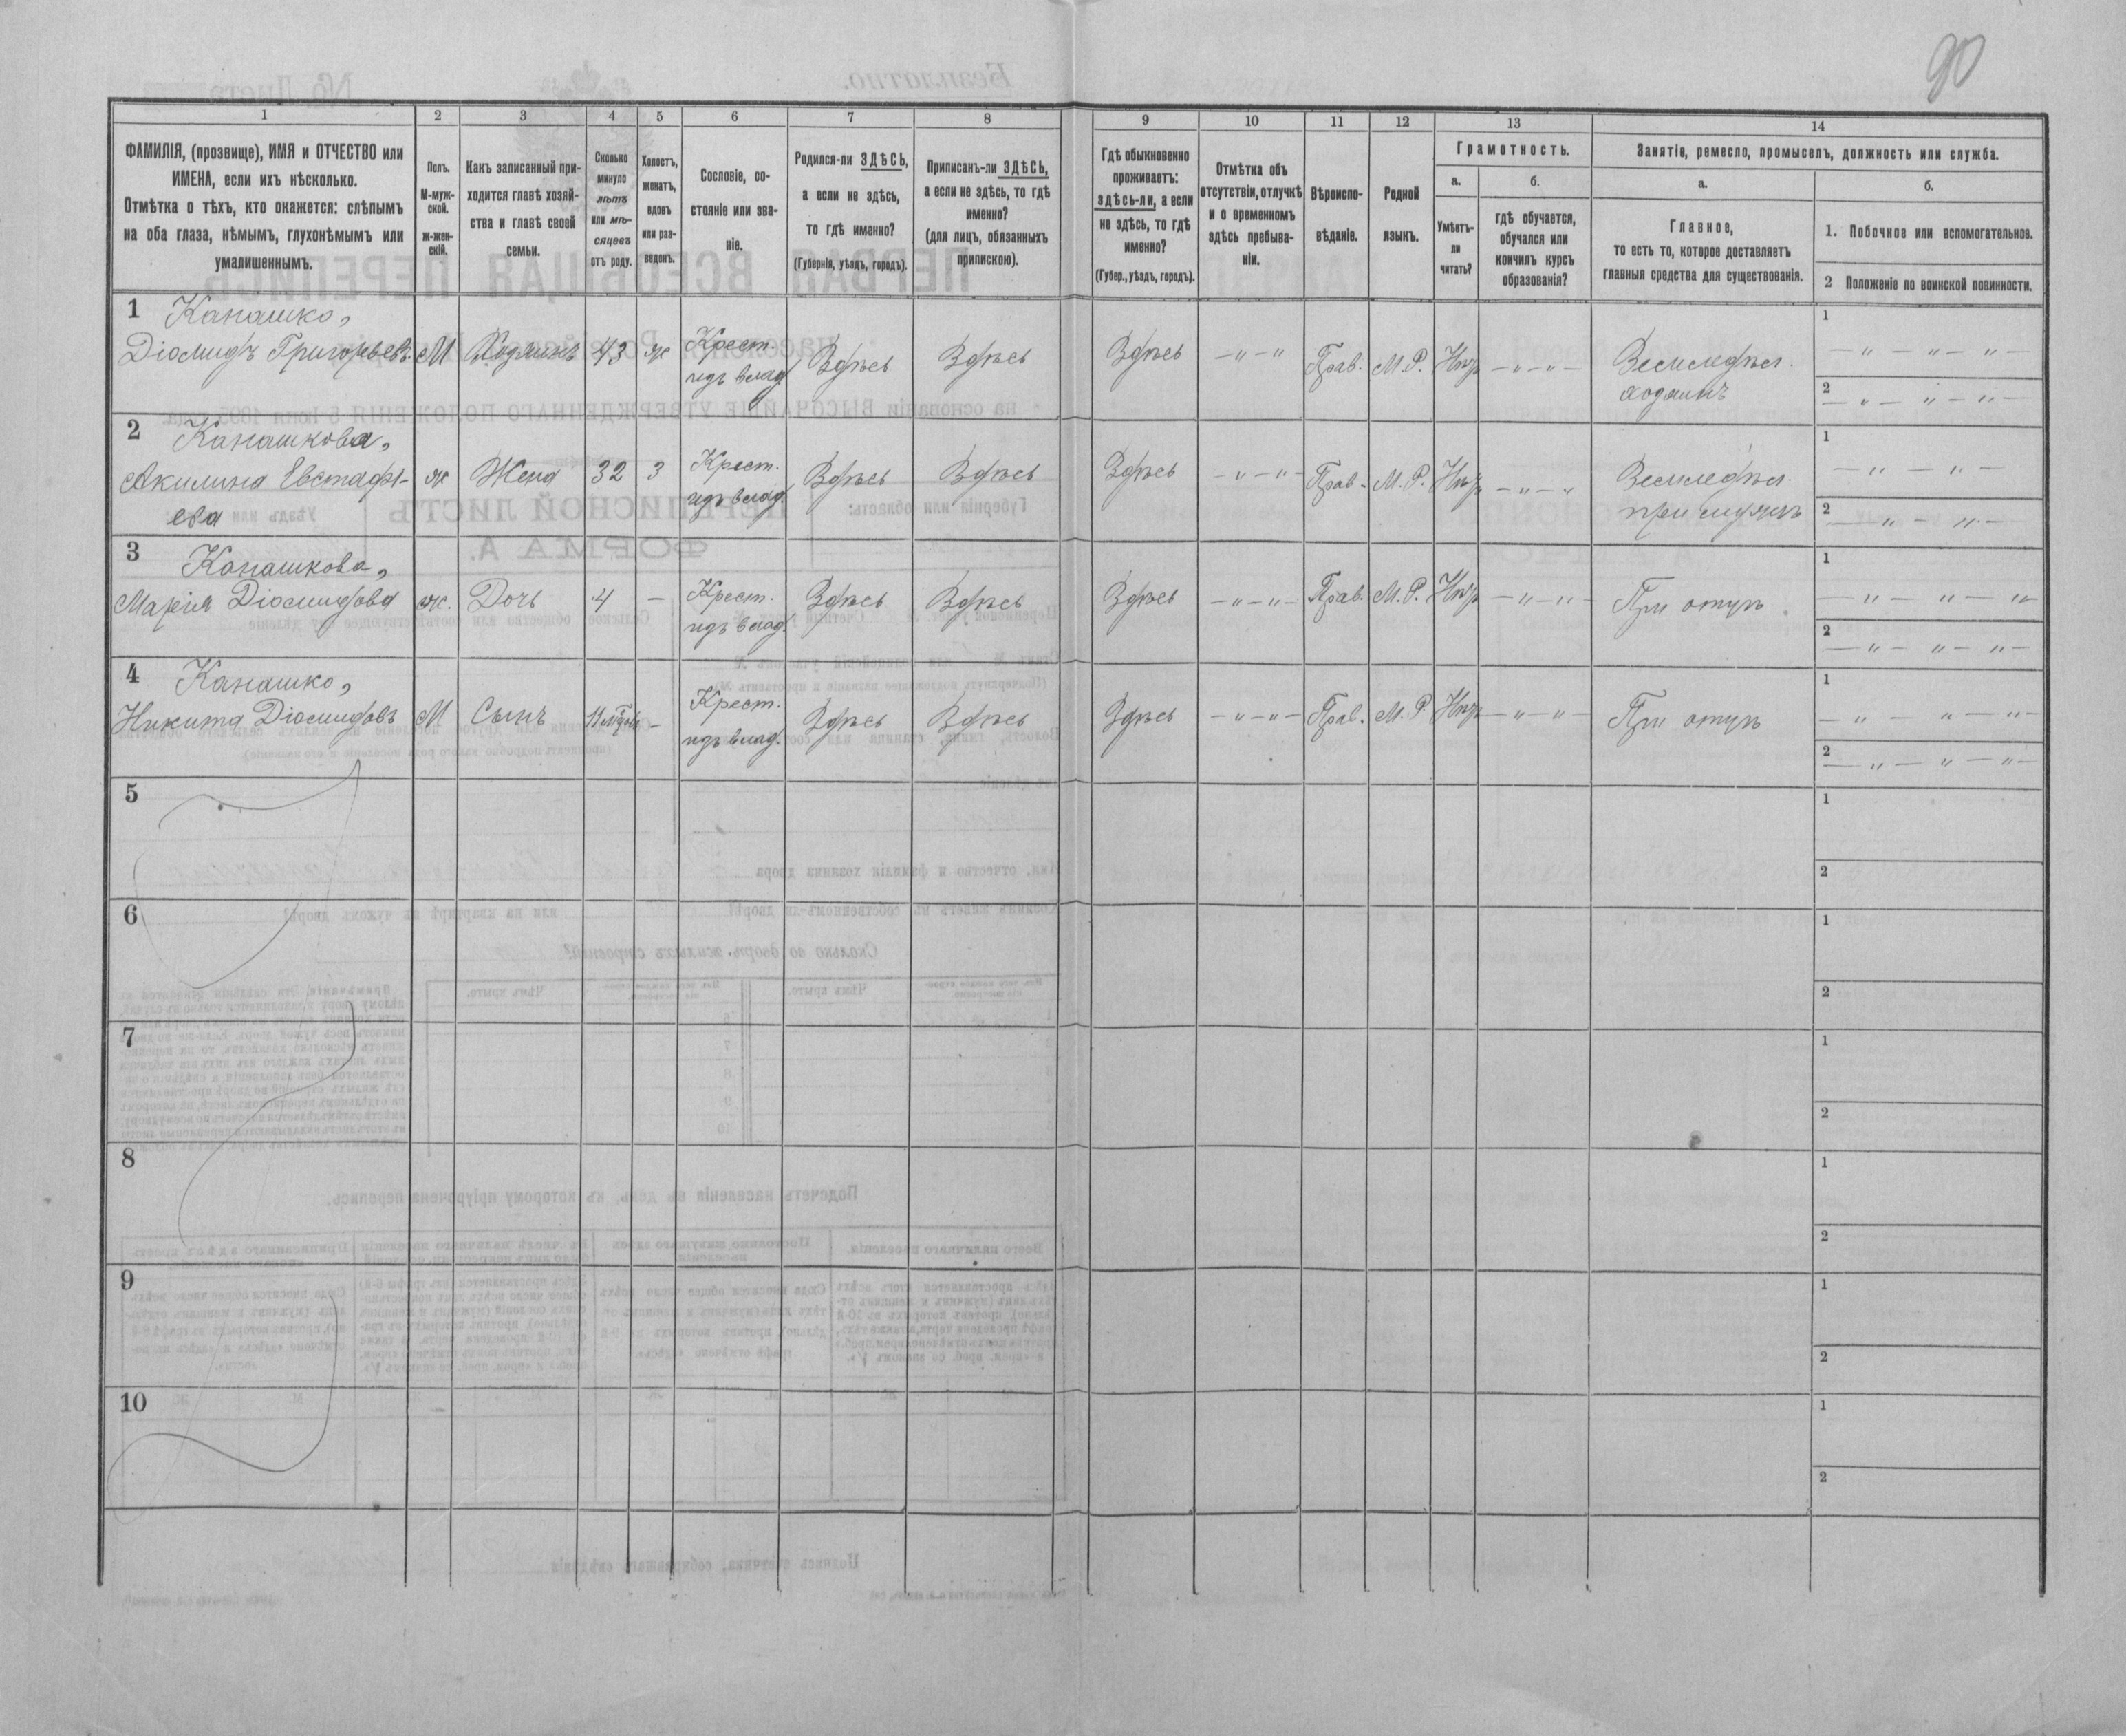 90
1 2 3 4 5 6 7 8 9 10 11 12 13 14
ФАМИЛІЯ, (прозвище), ИМЯ и ОТЧЕСТВО или
ИМЕНА, если ихъ нѣсколько.
Отмѣтка о тѣхъ, кто окажется: слѣпымъ
на оба глаза, нѣмымъ, глухонѣмымъ или
умалишеннымъ.
Полъ.
М-муж-
ской.
ж-жен-
скій.
Какъ записанный при-
ходится главѣ хозяй-
ства и главѣ своей
семьи.
Сколько
минуло
лѣтъ
или мѣ-
сяцевъ
отъ роду.
Холостъ,
женатъ,
вдовъ
или раз-
веденъ.
Сословіе, со-
стояніе или зва-
ніе.
Родился-ли ЗДѢСЬ,
а если не здѣсь,
то гдѣ именно?
(Губернія, уѣздъ, городъ).
Приписанъ-ли ЗДѢСЬ,
а если не здѣсь, то гдѣ
именно?
(для лицъ, обязанныхъ
припискою).
Гдѣ обыкновенно
проживаетъ:
здѣсь-ли, а если
не здѣсь, то гдѣ
именно?
(Губер., уѣздъ, городъ).
Отмѣтка объ
отсутствіи, отлучкѣ
и о временномъ
здѣсь пребыва-
ніи.
Вѣроиспо-
вѣданіе.
Родной
языкъ.
Грамотность.
а.
Умѣетъ-
ли
читать?
б.
гдѣ обучается,
обучался или
кончилъ курсъ
образованія?
Занятіе, ремесло, промыселъ, должность или служба.
а.
Главное,
то есть то, которое доставляетъ
главныя средства для существованія.
б.
1. Побочное или вспомогательное.
2 Положеніе по воинской повинности.
1 Канашко,
Діомидъ Григорьевъ М Хозяинъ 43 ж Крест. Здѣсь Здѣсь Здѣсь — " — " Прав. М.Р. Нѣтъ — " — " — Земледѣл.
изъ влад. хозяинъ
1 — " — " — " —
2 — " — " — " —
2 Канашкова,
Акилина Евстафі- ж Жена 32 З Крест. Здѣсь Здѣсь Здѣсь — " — " — Прав. М.Р. Нѣтъ — " — " Земледѣл.
ева изъ влад. при мужѣ
1 — " — " —
2 — " — " —
3 Канашкова,
Марія Діомидова ж. Дочь 4 — Крест. Здѣсь Здѣсь Здѣсь — " — " — Прав. М.Р. Нѣтъ — " — " — При отцѣ
изъ влад.
1 — " — " — "
2 — " — " — " —
4 Канашко,
Никита Діомидовъ М Сынъ — Крест. Здѣсь Здѣсь Здѣсь — " — " — Прав. М.Р. Нѣтъ — " — " — При отцѣ
изъ влад.
1 — " — " — " —
2 — " — " — " —
5
1
2
6
1
2
7
1
2
8
1
2
9
1
2
10
1
2